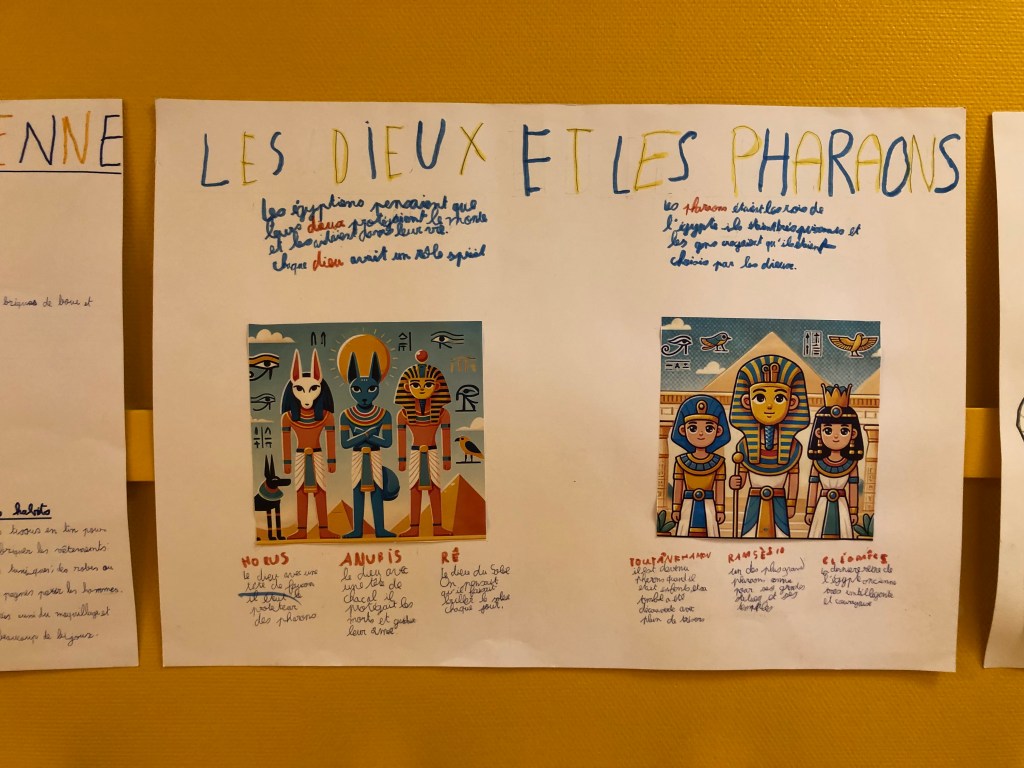 ENNE
briques de boue et
habits
tissus en lin pour
les vêtements
les robes ou
pagnes pour les hommes.
du maquillage et
beaucoup de bijoux.
LES DIEUX ET LES PHARAONS
Les égyptiens pensaient que
leurs dieux protégaient le monde
et les aidaient dans leur vie.
chaque dieu avait un rôle spécial
Les pharaons étaient les rois de
l'égypte ils étaient très puissants et
les gens croyaient qu'ils étaient
choisis par les dieux.
HORUS
le dieu avec une
tête de faucon
il était le
protecteur
des pharons
ANUBIS
le dieu avec
une tête de
chacal il
protégait les
morts et guidai
leur âme
RÊ
le dieu du Soleil
On pensait
qu'il faisait
briller le soleil
chaque jour.
TOUTÂNKHAMON
il est devenu
pharaon quand il
était enfant et sa
tombe a été
découverte avec
plein de trésors
RAMSÈS
un des plus grand
pharaon connu
par ses grandes
statues et ses
temples
CLÉOPÂTRE
la dernière reine de
l'égypte ancienne
très intelligente
et courageuse